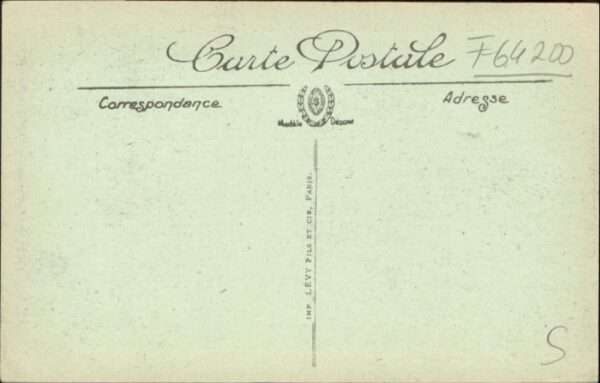 Carte Postale F64200
Correspondance
Adresse
Modèle Déposé
IMP. LÉVY FILS ET CIE, PARIS.
S